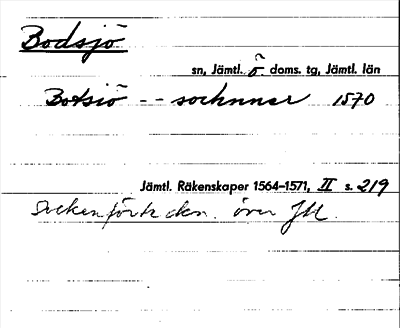 Bodsjö
sn, Jämtl. ö doms. tg, Jämtl. län
Botsiö -- sochnner 1570
Jämtl. Räkenskaper 1564–1571, II s. 219
Sockenförteckn. över Jtl.